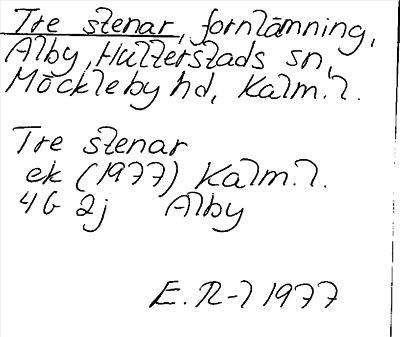 Tre stenar, fornlämning,
Alby, Hulterstads sn,
Möckleby hd, Kalm. l.
Tre stenar
ek (1977) Kalm. l.
4G 2j Alby
E. R-l 1977